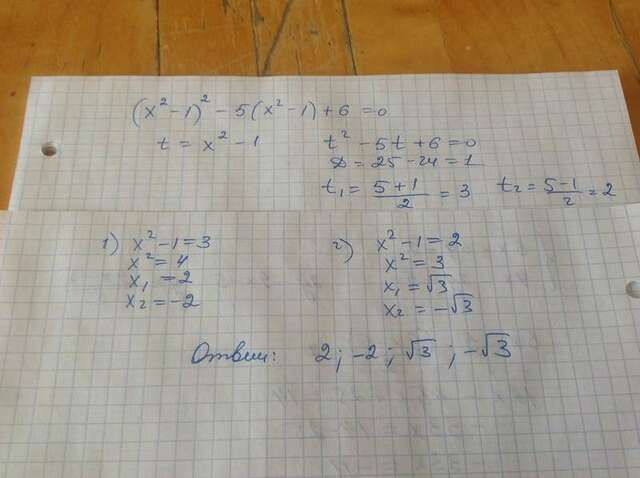 (x² - 1)² - 5(x² - 1) + 6 = 0
t = x² - 1
t² - 5t + 6 = 0
D = 25 - 24 = 1
t₁ = (5+1)/2 = 3 t₂ = (5-1)/2 = 2
1) x² - 1 = 3
x² = 4
x₁ = 2
x₂ = -2
2) x² - 1 = 2
x² = 3
x₁ = √3
x₂ = -√3
Ответ: 2; -2; √3; -√3